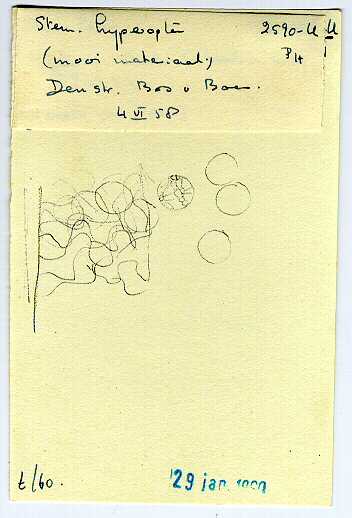 Stem. hyperopta 2590-U U
(mooi materiaal.) PH
Den str. Bos v Boer.
4 VI 58
t/60.
29 jan. 1960